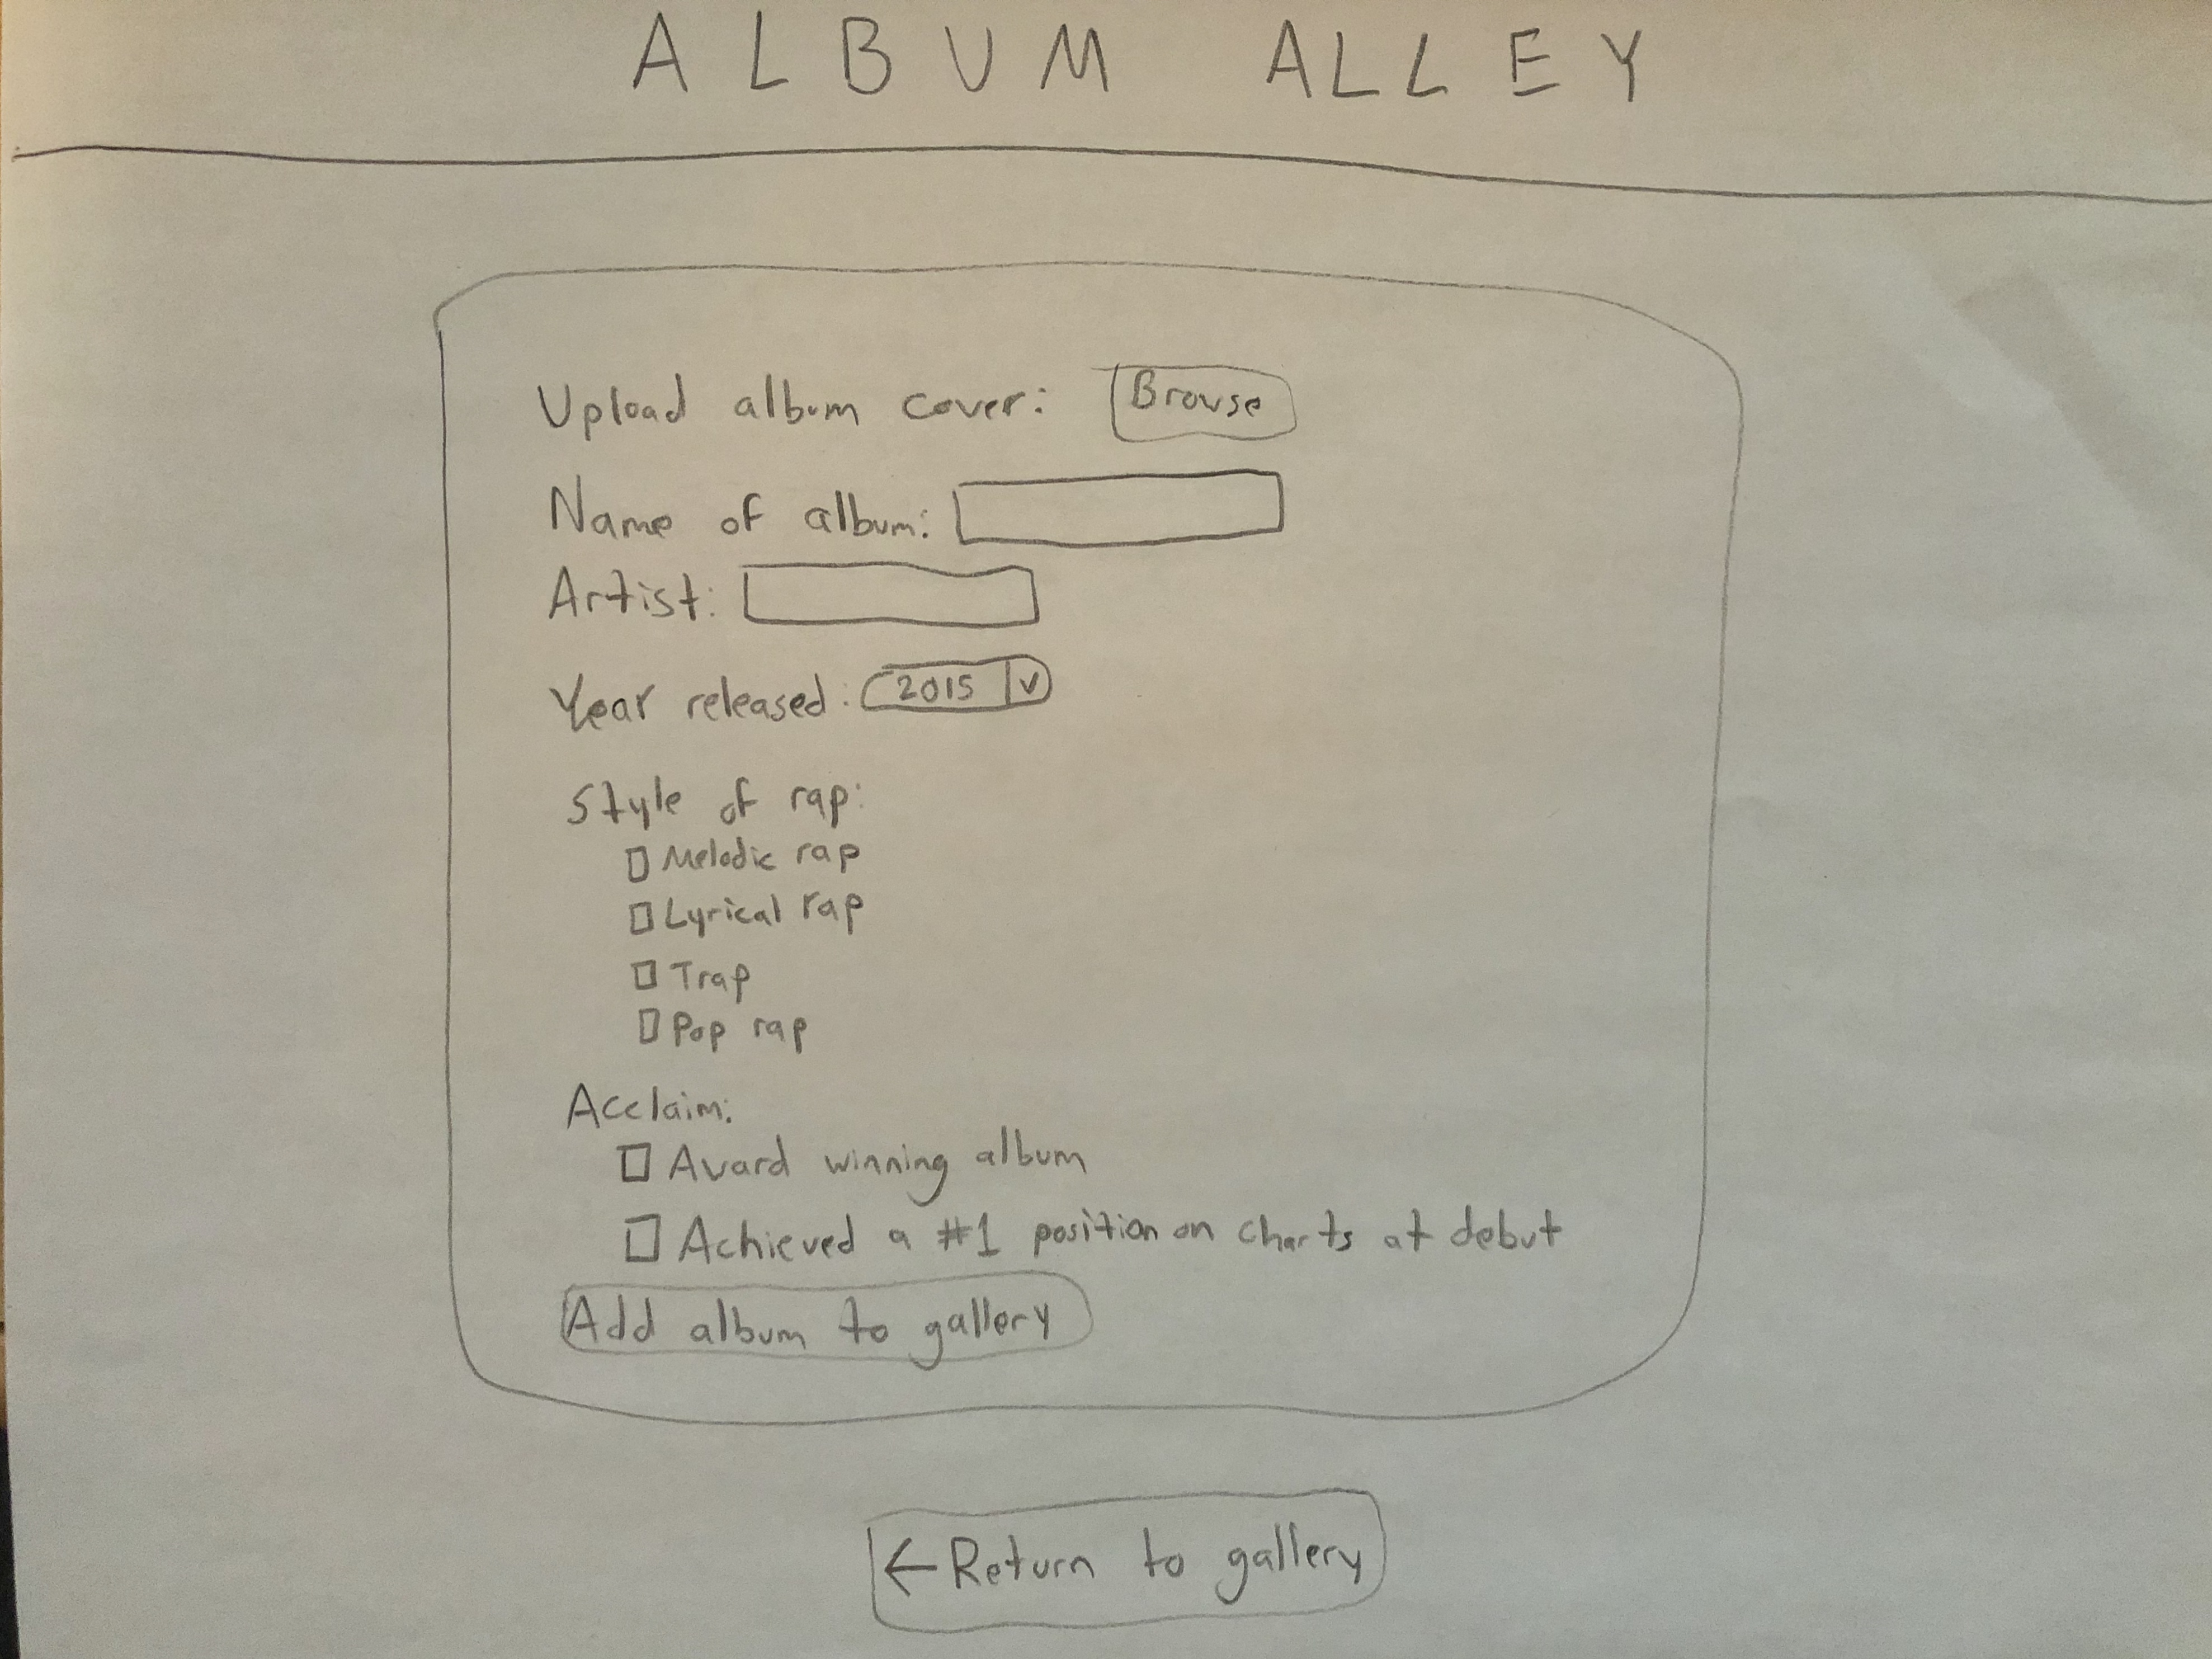 ALBUM ALLEY
Upload album cover: Browse
Name of album:
Artist:
Year released: 2015 v
Style of rap:
Melodic rap
Lyrical rap
Trap
Pop rap
Acclaim:
Award winning album
Achieved a #1 position on charts at debut
Add album to gallery
← Return to gallery